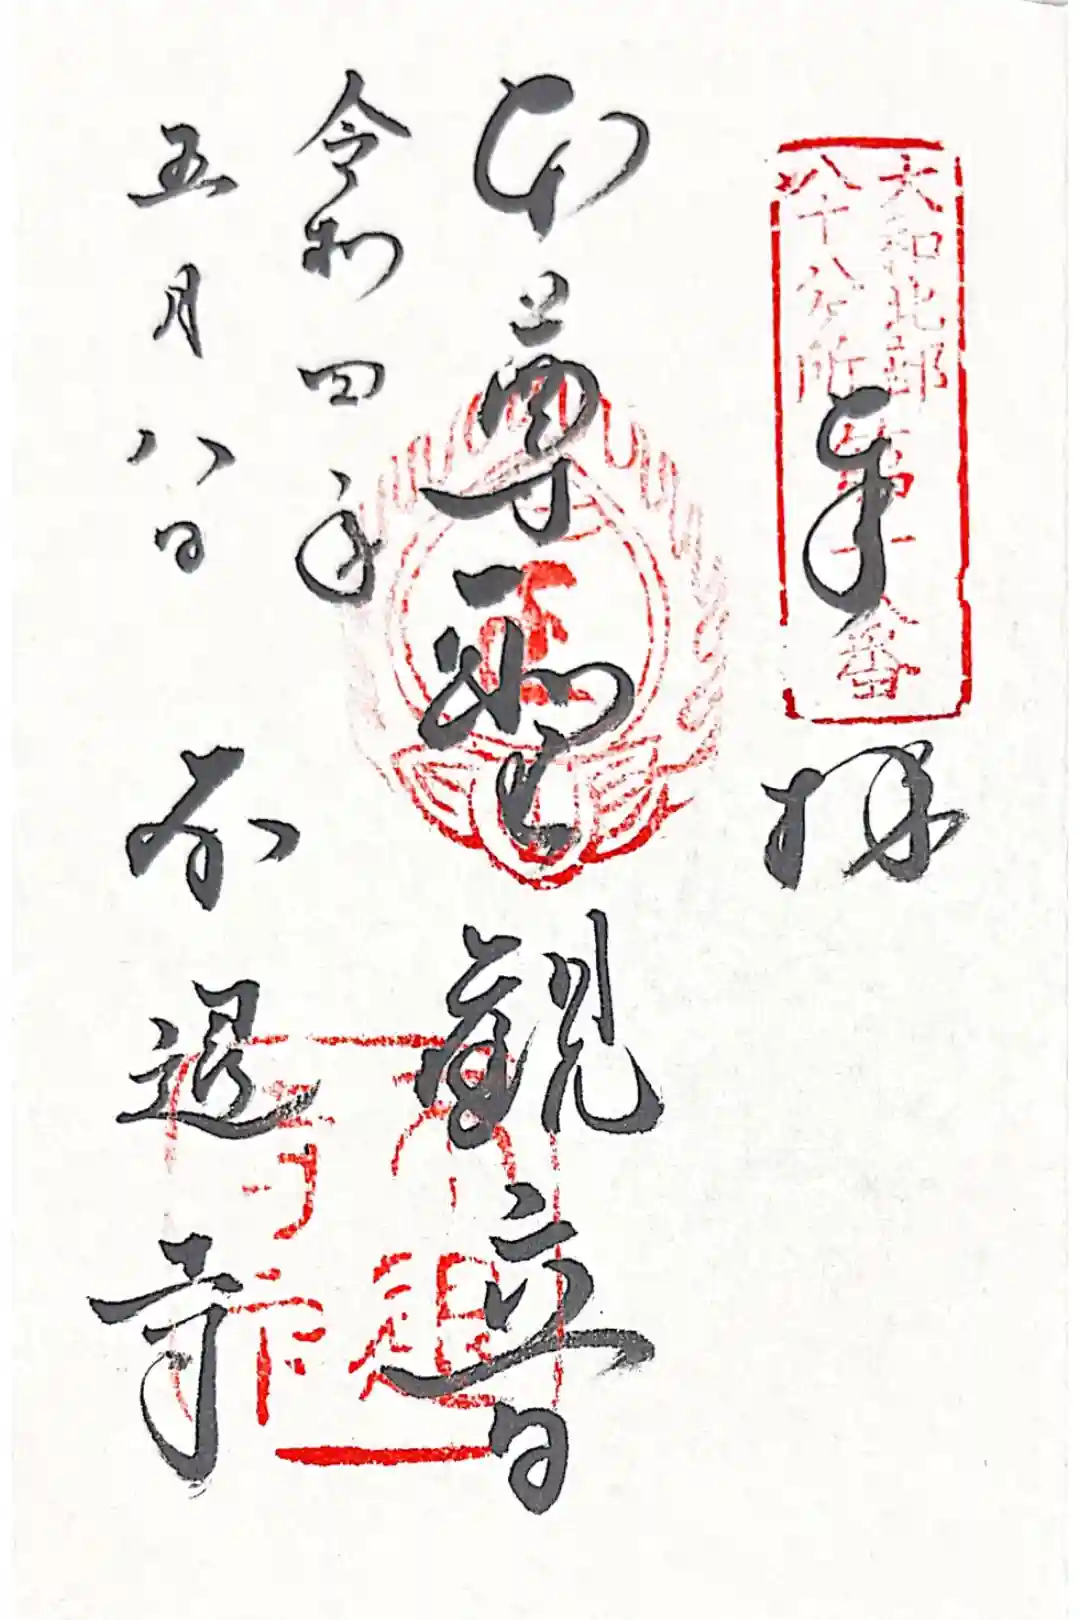 大和北部
八十八ヶ所
第十八番
奉拝
本尊 聖観音
令和四年
五月八日
不退寺